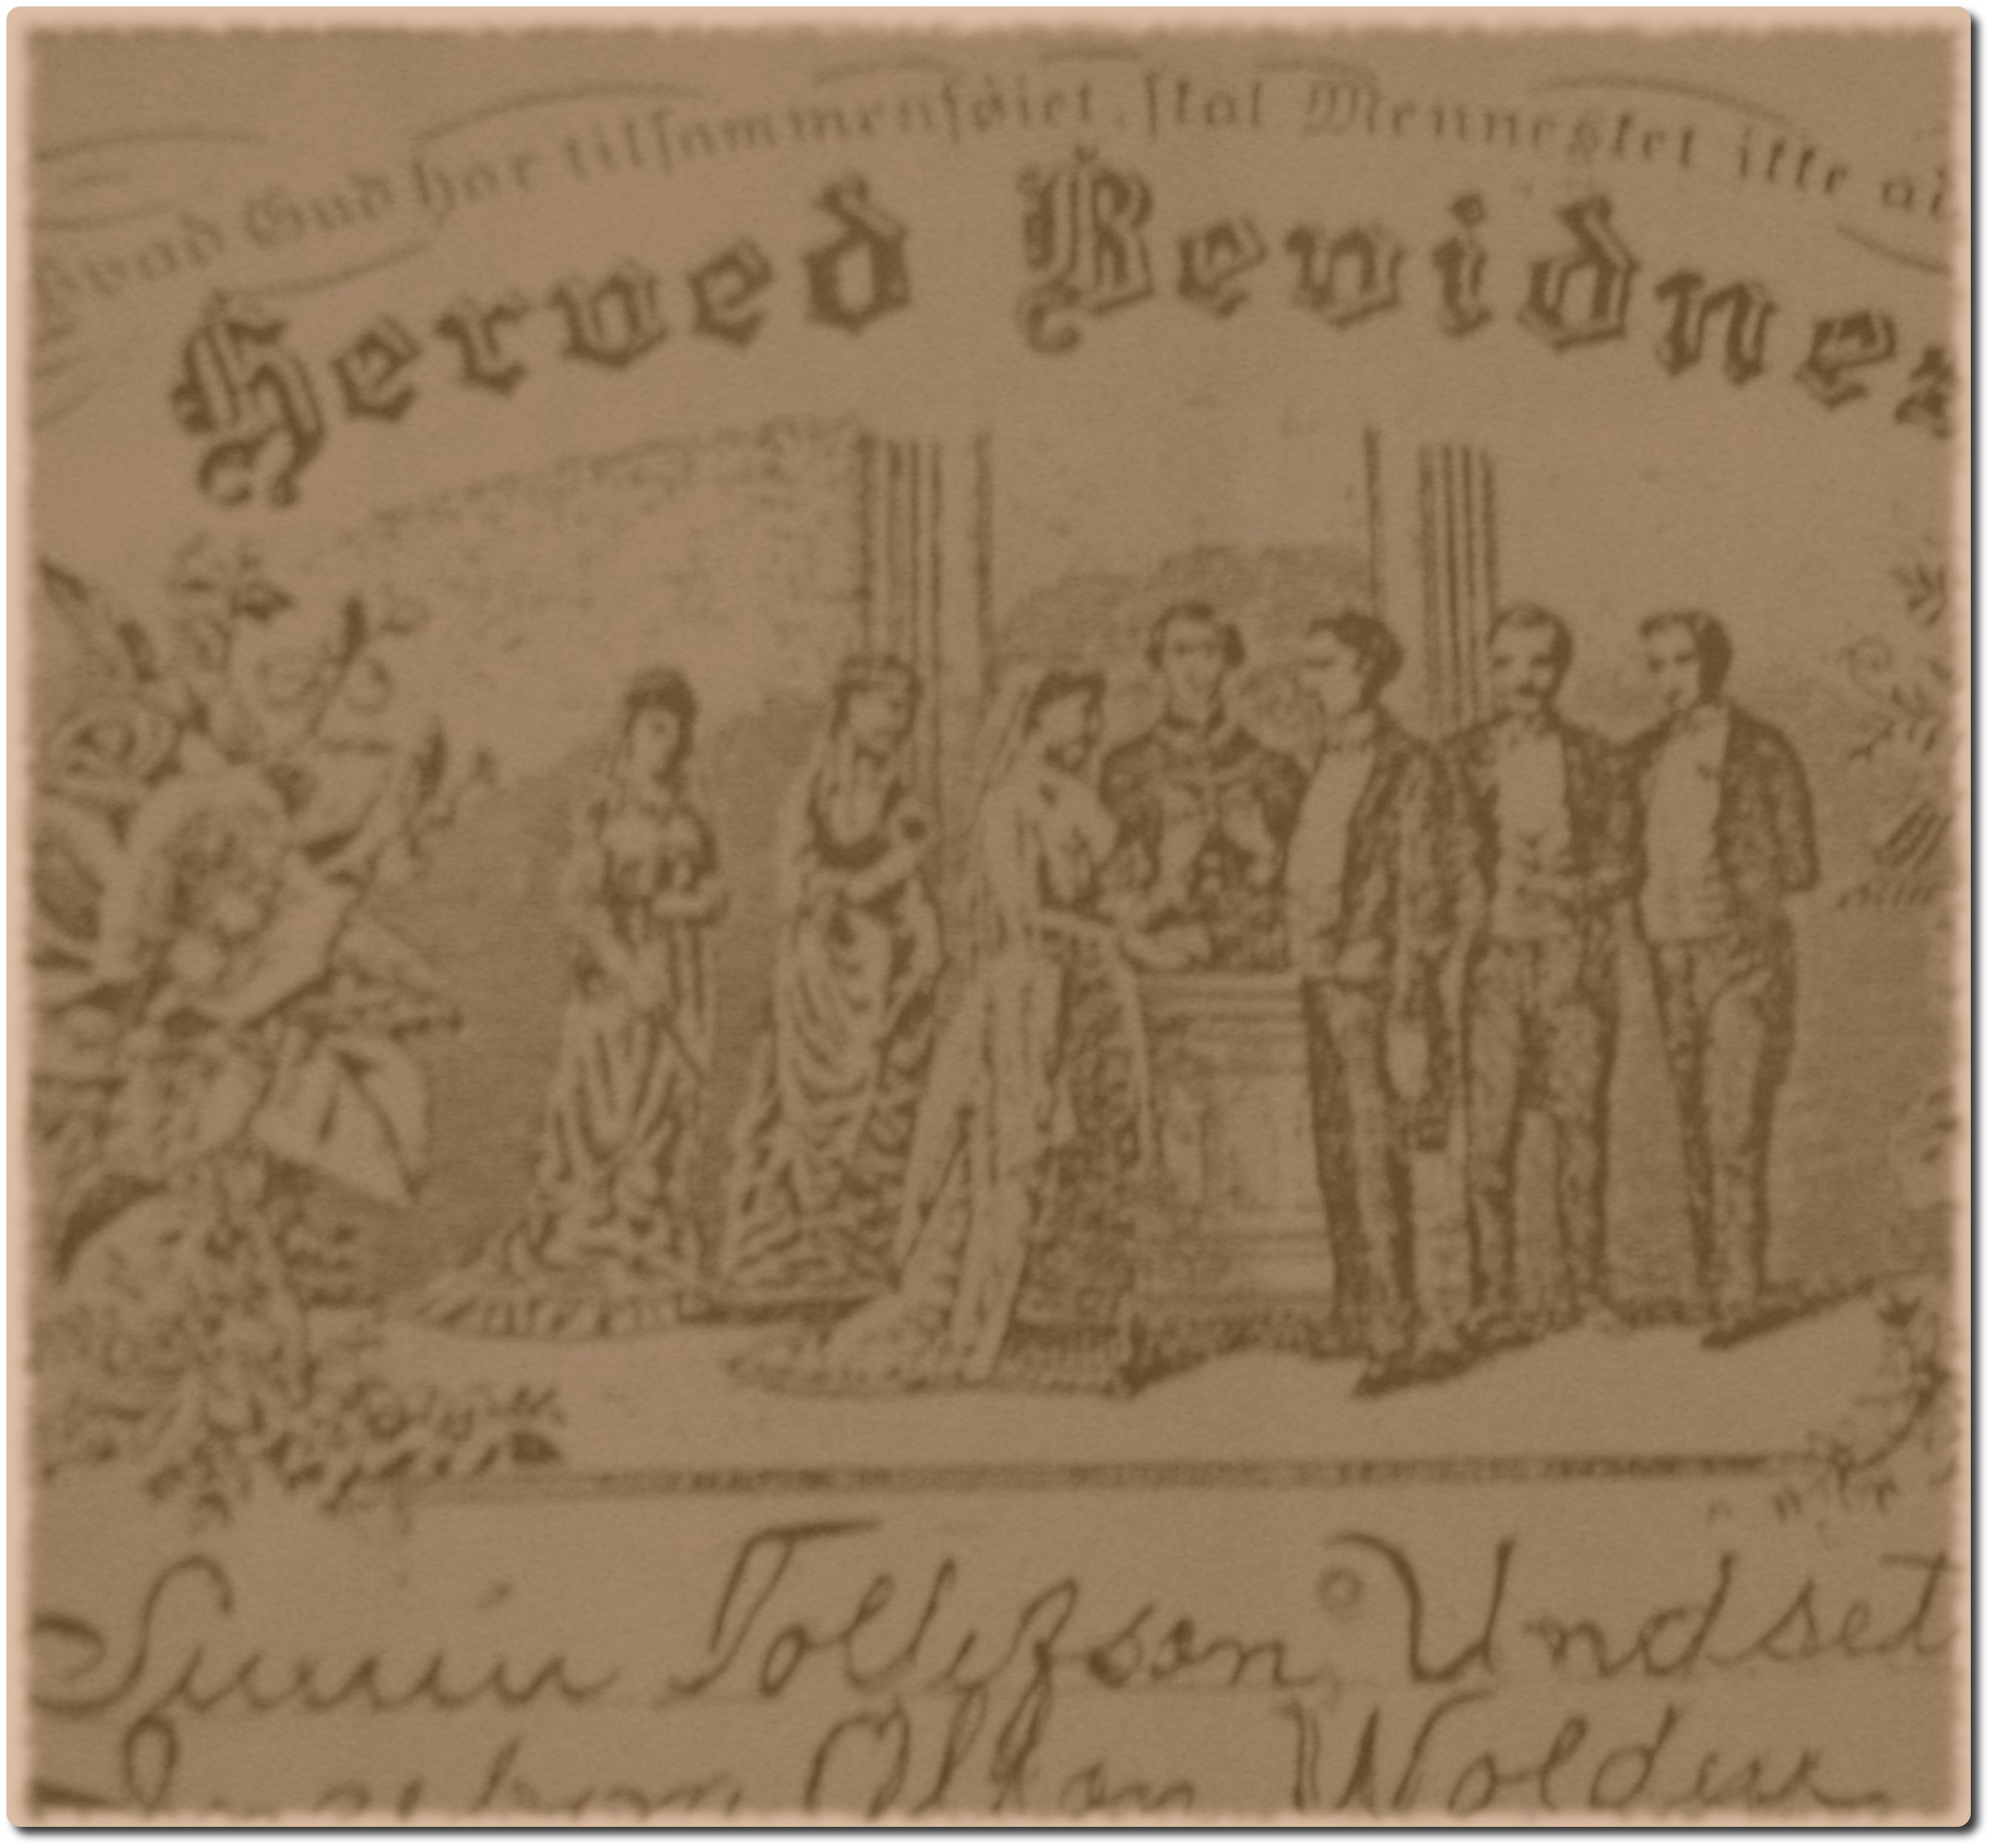 Hvad Gud har tilsammenføiet, skal Mennesket ikke ad
Herved Bevidnes
Tollefson Undset
Olson